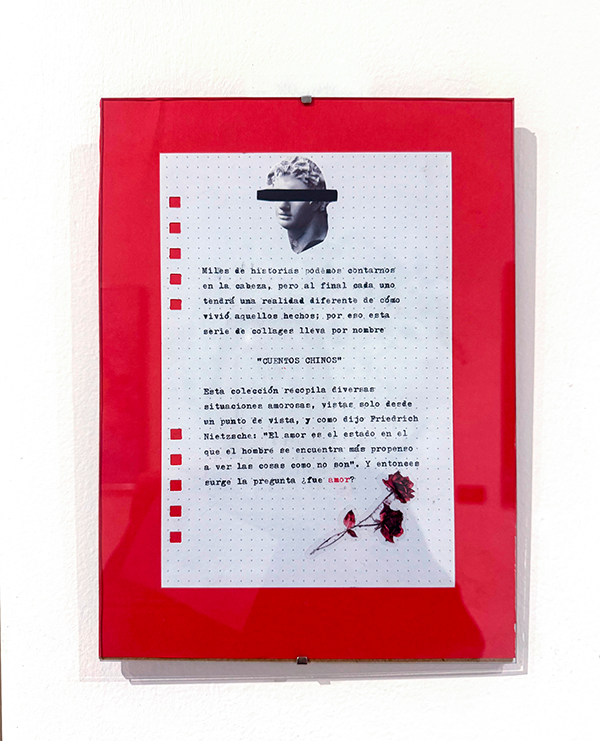 Miles de historias podemos contarnos
en la cabeza, pero al final cada uno
tendrá una realidad diferente de cómo
vivió aquellos hechos; por eso esta
serie de collages lleva por nombre
"CUENTOS CHINOS"
Esta colección recopila diversas
situaciones amorosas, vistas solo desde
un punto de vista, y como dijo Friedrich
Nietzsche: "El amor es el estado en el
que el hombre se encuentra más propenso
a ver las cosas como no son". Y entonces
surge la pregunta ¿fue amor?